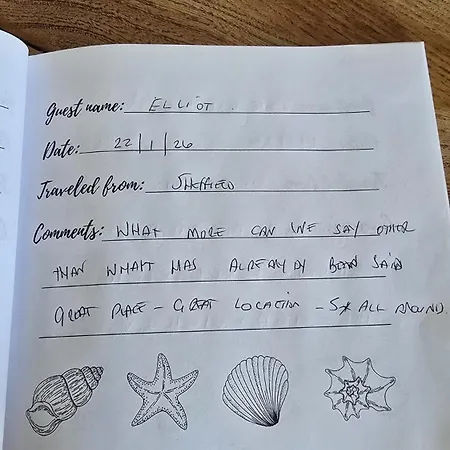 Guest name: ELLIOT.
Date: 22/1/26
Traveled from: SHEFFIELD
Comments: WHAT MORE CAN WE SAY OTHER
THAN WHAT HAS ALREADY BEEN SAID
GREAT PLACE - GREAT LOCATION - 5* ALL AROUND.